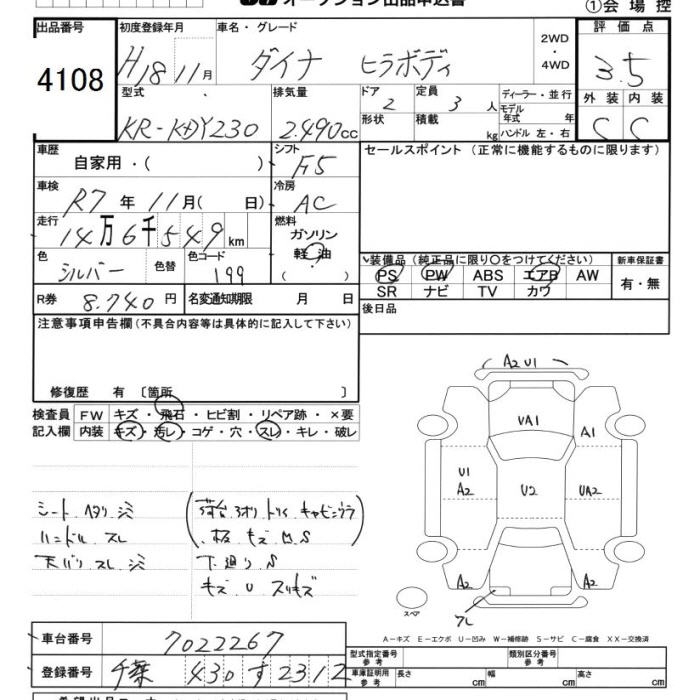 オークション出品申込書
①会場控
出品番号 4108
初度登録年月 H18 11月
車名・グレード ダイナ ヒラボディ
2WD・4WD
評価点 3.5
外装 C 内装 C
型式 KR-KDY230
排気量 2.490cc
ドア 2
定員 3人
形状
積載 kg
ディーラー・並行
モデル年式 年
ハンドル 左・右
車歴 自家用・( )
シフト F5
セールスポイント (正常に機能するものに限ります)
車検 R7年 11月( 日)
冷房 AC
走行 14万6千549km
燃料 ガソリン 軽油 ( )
色 シルバー 色替
色コード 199
装備品 (純正品に限り○をつけてください)
PS PW ABS エアB AW
SR ナビ TV カワ
新車保証書 有・無
R券 8.740円
名変通知期限 月 日
後日品
注意事項申告欄 (不具合内容等は具体的に記入して下さい)
修復歴 有 〔箇所 〕
検査員記入欄
FW キズ・飛石・ヒビ割・リペア跡・×要
内装 キズ・汚レ・コゲ・穴・スレ・キレ・破レ
シート ヘタリ シミ
ハンドル スレ
天バリ スレ シミ
荷台 3オリ トリイ キャビンウラ
板 キズ M S
下廻り S
キズ U スリキズ
A2 U1
VA1
A1
U1
A2
U2
UA2
A2
A2
スペア
A−キズ E−エクボ U−凹み W−補修跡 S−サビ C−腐食 XX−交換済
車台番号 7022267
登録番号 千葉 430 す 2312
型式指定番号 参考
類別区分番号 参考
車庫証明用 参考 長さ cm 幅 cm 高さ cm